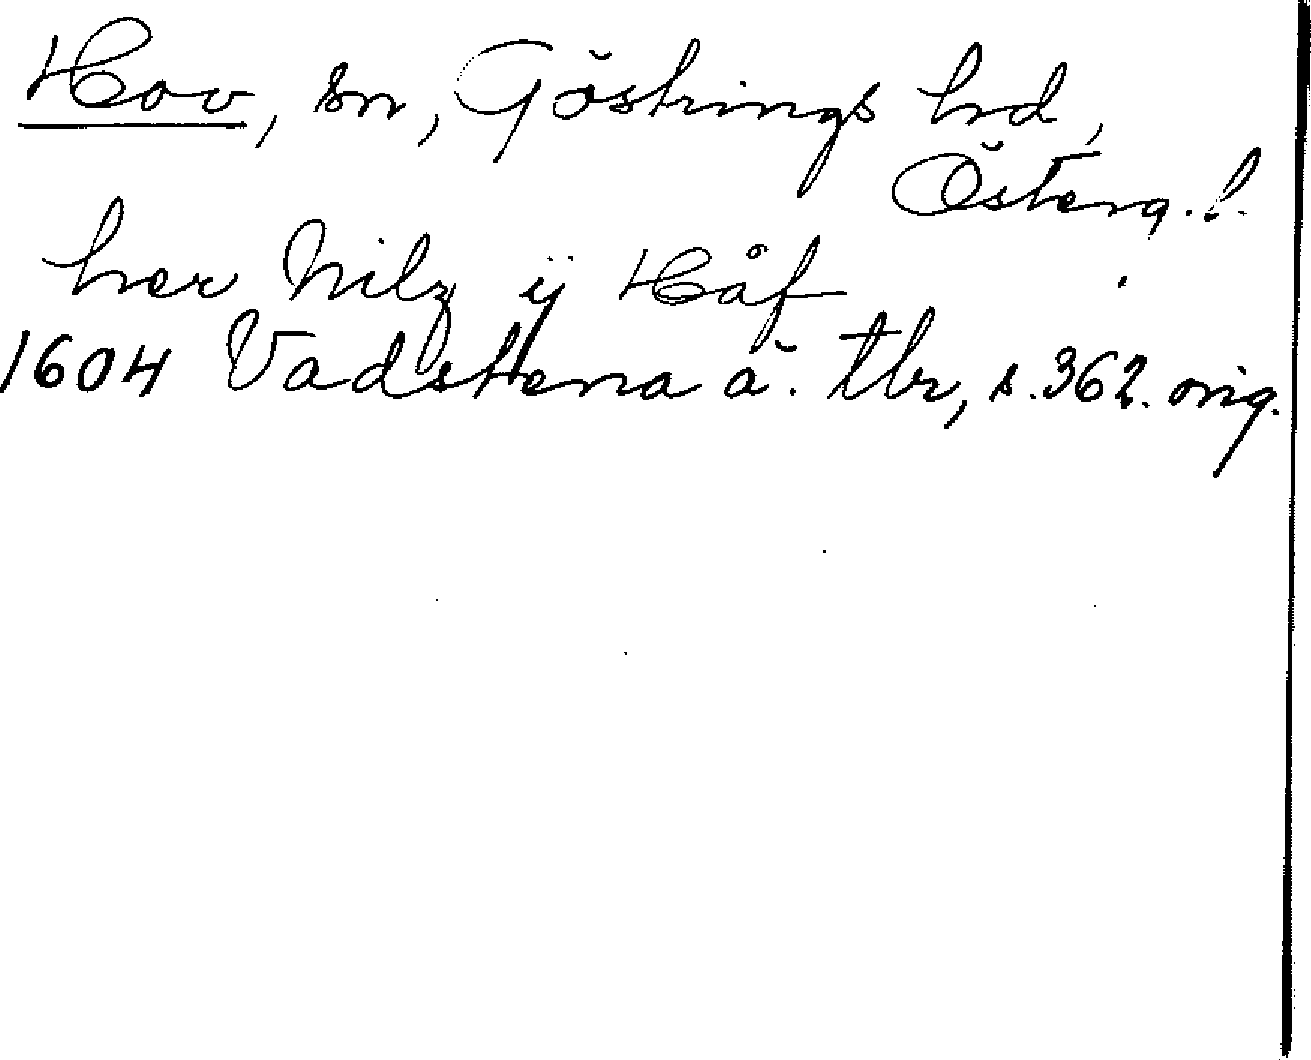 Hov, sn, Göstrings hd,
Österg. l.
her Nilz ÿ Håf
1604 Vadstena ä. tbr, s. 362. orig.